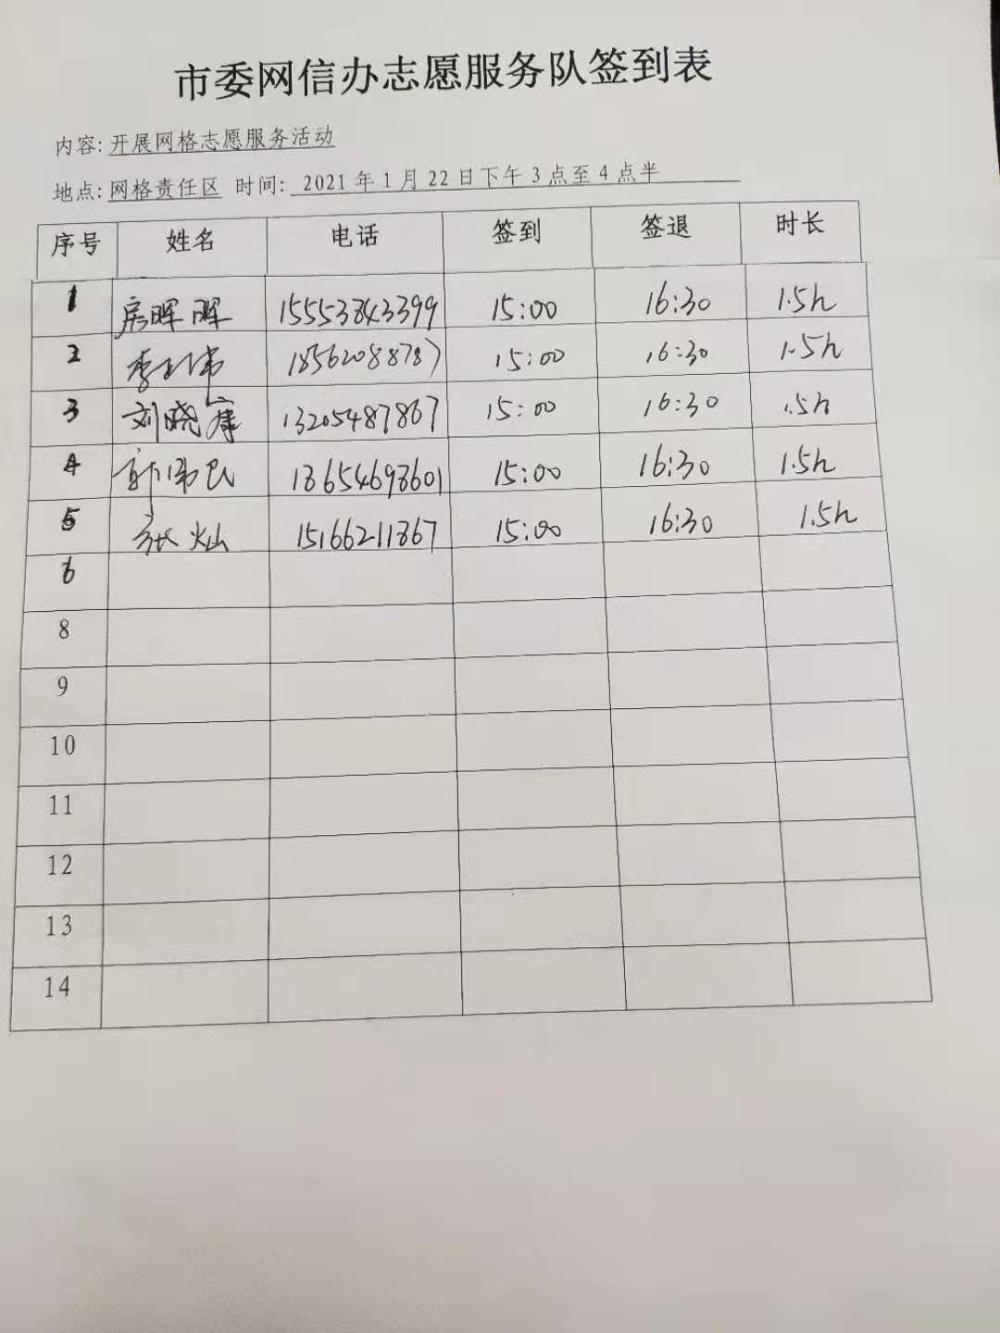 市委网信办志愿服务队签到表
内容: 开展网格志愿服务活动
地点: 网格责任区 时间: 2021年1月22日下午3点至4点半
序号 姓名 电话 签到 签退 时长
1 房晖晖 15553843399 15:00 16:30 1.5h
2 18562088787 15:00 16:30 1.5h
3 刘晓 13205487867 15:00 16:30 .5h
4 郭伟民 18654698601 15:00 16:30 1.5h
5 张灿 15166211867 15:00 16:30 1.5h
6
8
9
10
11
12
13
14